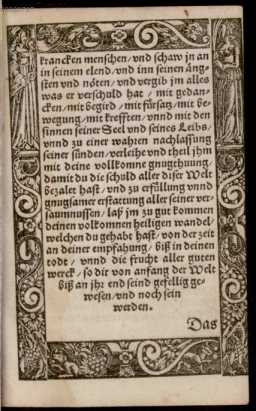 krancken menschen / vnd schaw jn an
in seinem elend / vnd inn seinen äng-
sten vnd nöten / vnd vergib jm alles
was er verschuld hat / mit gedan-
cken / mit begird / mit fürsatz / mit be-
wegung / mit krefften / vnnd mit den
sinnen seiner Seel vnd seines Leibs /
vnnd zu einer wahren nachlassung
seiner sünden / verleihe vnd theil jhm
mit deine vollkomne gnugthuung /
damit du die schuld aller diser Welt
bezalet hast / vnd zu erfüllung vnnd
gnugsamer erstattung aller seiner ver-
saumnussen / laß jm zu gut kommen
deinen volkomnen heiligen wandel /
welchen du gehabt hast / von der zeit
an deiner empfahung / biß in deinen
todt / vnnd die frucht aller guten
werck / so dir von anfang der Welt
biß an jhr end seind gefellig ge-
wesen / vnd noch sein
werden.
Das